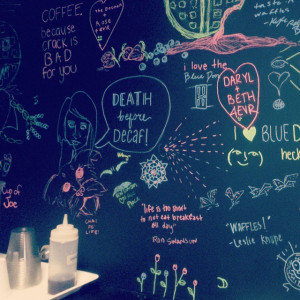 COFFEE,
because
crack is
BAD
for you
the Doctor
&
Rose
4ever
i love the
Blue
DARYL
+
BETH
4EVR
DEATH
before
DECAF!
I ♥ BLUE D
heck
cup of
Joe
CHAI
TE
LIFE
"life is too short
to not eat breakfast
all day"
Ron
"WAFFLES!"
-Leslie Knope